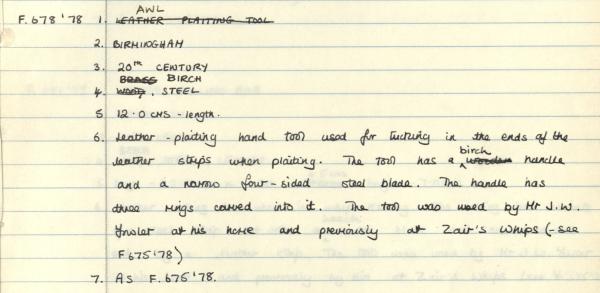 AWL
F.678'78 1. LEATHER PLAITING TOOL
2. BIRMINGHAM
3. 20TH CENTURY
BRASS BIRCH
4. WOOD, STEEL
5 12.0 CMS - length.
6. Leather-plaiting hand tool used for tucking in the ends of the
birch
leather strips when plaiting. The tool has a wooden handle
and a narrow four-sided steel blade. The handle has
three rings carved into it. The tool was used by Mr J.W.
at his home and previously at Zair's Whips (-see
F675'78)
7. AS F.675'78.